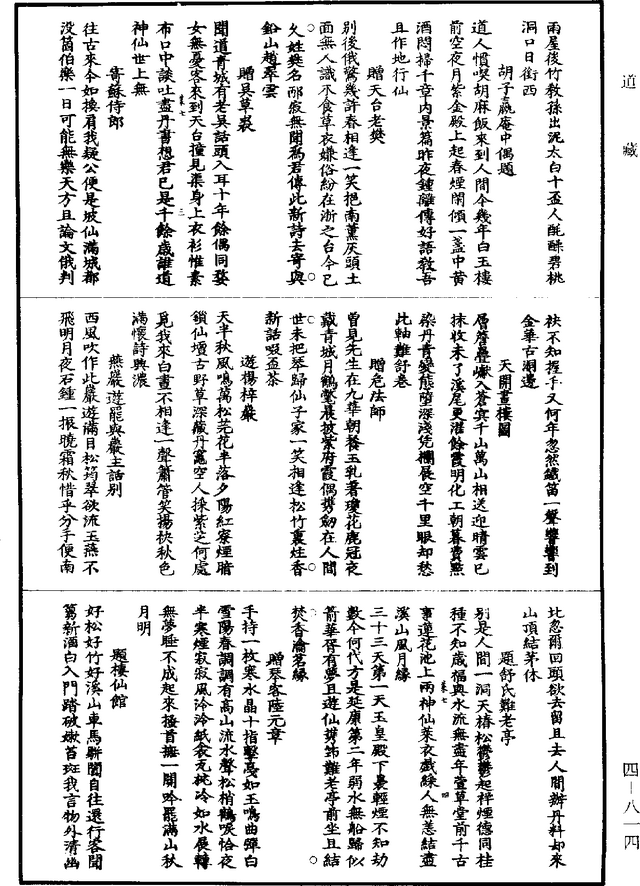 道藏
雨屋後竹敎孫出泥太白十盃人酕醄碧桃
洞口日銜西
胡子嬴庵中偶題
道人慣喫胡麻飯來到人間今幾年白玉樓
前空夜月紫金殿上起春煙閑傾一盞中黃
酒悶掃千章內景篇昨夜鍾離傳好語敎吾
且作地行仙
贈天台老樊
別後俄驚幾許春相逢一笑挹南薰灰頭土
面無人識不食草衣嫌俗紛在浙之台今已
久姓樊名邴寂無聞爲君傳此新詩去寄與
鉛山趙翠雲
贈吳草裘
聞道靑城有老吳話頭入耳十年餘偶同婺
女無憂客來到天台撞見渠身上衣衫惟素
布口中談吐盡丹書想君已是千餘歲誰道
神仙世上無
寄蘇侍郎
往古來今如換肩我疑公便是坡仙滿城都
没箇伯樂一日可能無樂天方且論文俄判
袂不知握手又何年忽然鐵笛一聲響響到
金華古洞邊
天開畫樓圖
層簷疊巘入蒼冥千山萬山相送迎晴雲已
抹收未了溪尾更濯餘霞明化工朝暮費點
染丹靑變態墮深淺凭欄展空千里眼却愁
此軸難舒卷
贈危法師
曾見先生在九華朝餐玉乳著瓊花鹿冠夜
戴靑城月鶴氅晨披紫府霞偶携劒在人間
世未把琴歸仙子家一笑相逢松竹裏炷香
新話啜盃茶
遊楊梓巖
天半秋風鳴萬松芫花半落夕陽紅寮煙暗
鎖仙壇古野草深藏丹竈空人採紫芝何處
覓我來白晝不相逢一聲簫管笑揚袂秋色
滿懷詩興濃
燕巖遊罷與巖主話別
西風吹作此巖遊滿目松筠翠欲流玉燕不
飛明月夜石鍾一振曉霜秋惜乎分手便南
北忽爾回頭欲去留且去人間辦丹料却來
山頂結茅休
題舒氏難老亭
別是人間一洞天椿松鬱鬱起祥煙德同桂
種不知歲福與水流無盡年萱草堂前千古
事蓮花池上兩神仙萊衣戲綵人無恙結盡
溪山風月緣
三十三天第一天玉皇殿下裊輕煙不知劫
數今何代方是延康第二年弱水無船歸似
箭華胥有夢且遊仙携笻難老亭前坐且結
焚香瀹茗緣
贈琴客陸元章
手持一枚寒水晶十指擊戛如玉鳴曲彈白
雪陽春調調有高山流水聲松梢鶴唳恰夜
半寒煙寂寂風泠泠紙衾瓦枕冷如水展轉
無夢睡不成起來搔首撫一闋吟罷滿山秋
月明
題棲仙館
好松好竹好溪山車馬駢闐自往還行客聞
篘新酒白入門踏破嫩苔斑我言物外清幽
四—八一四